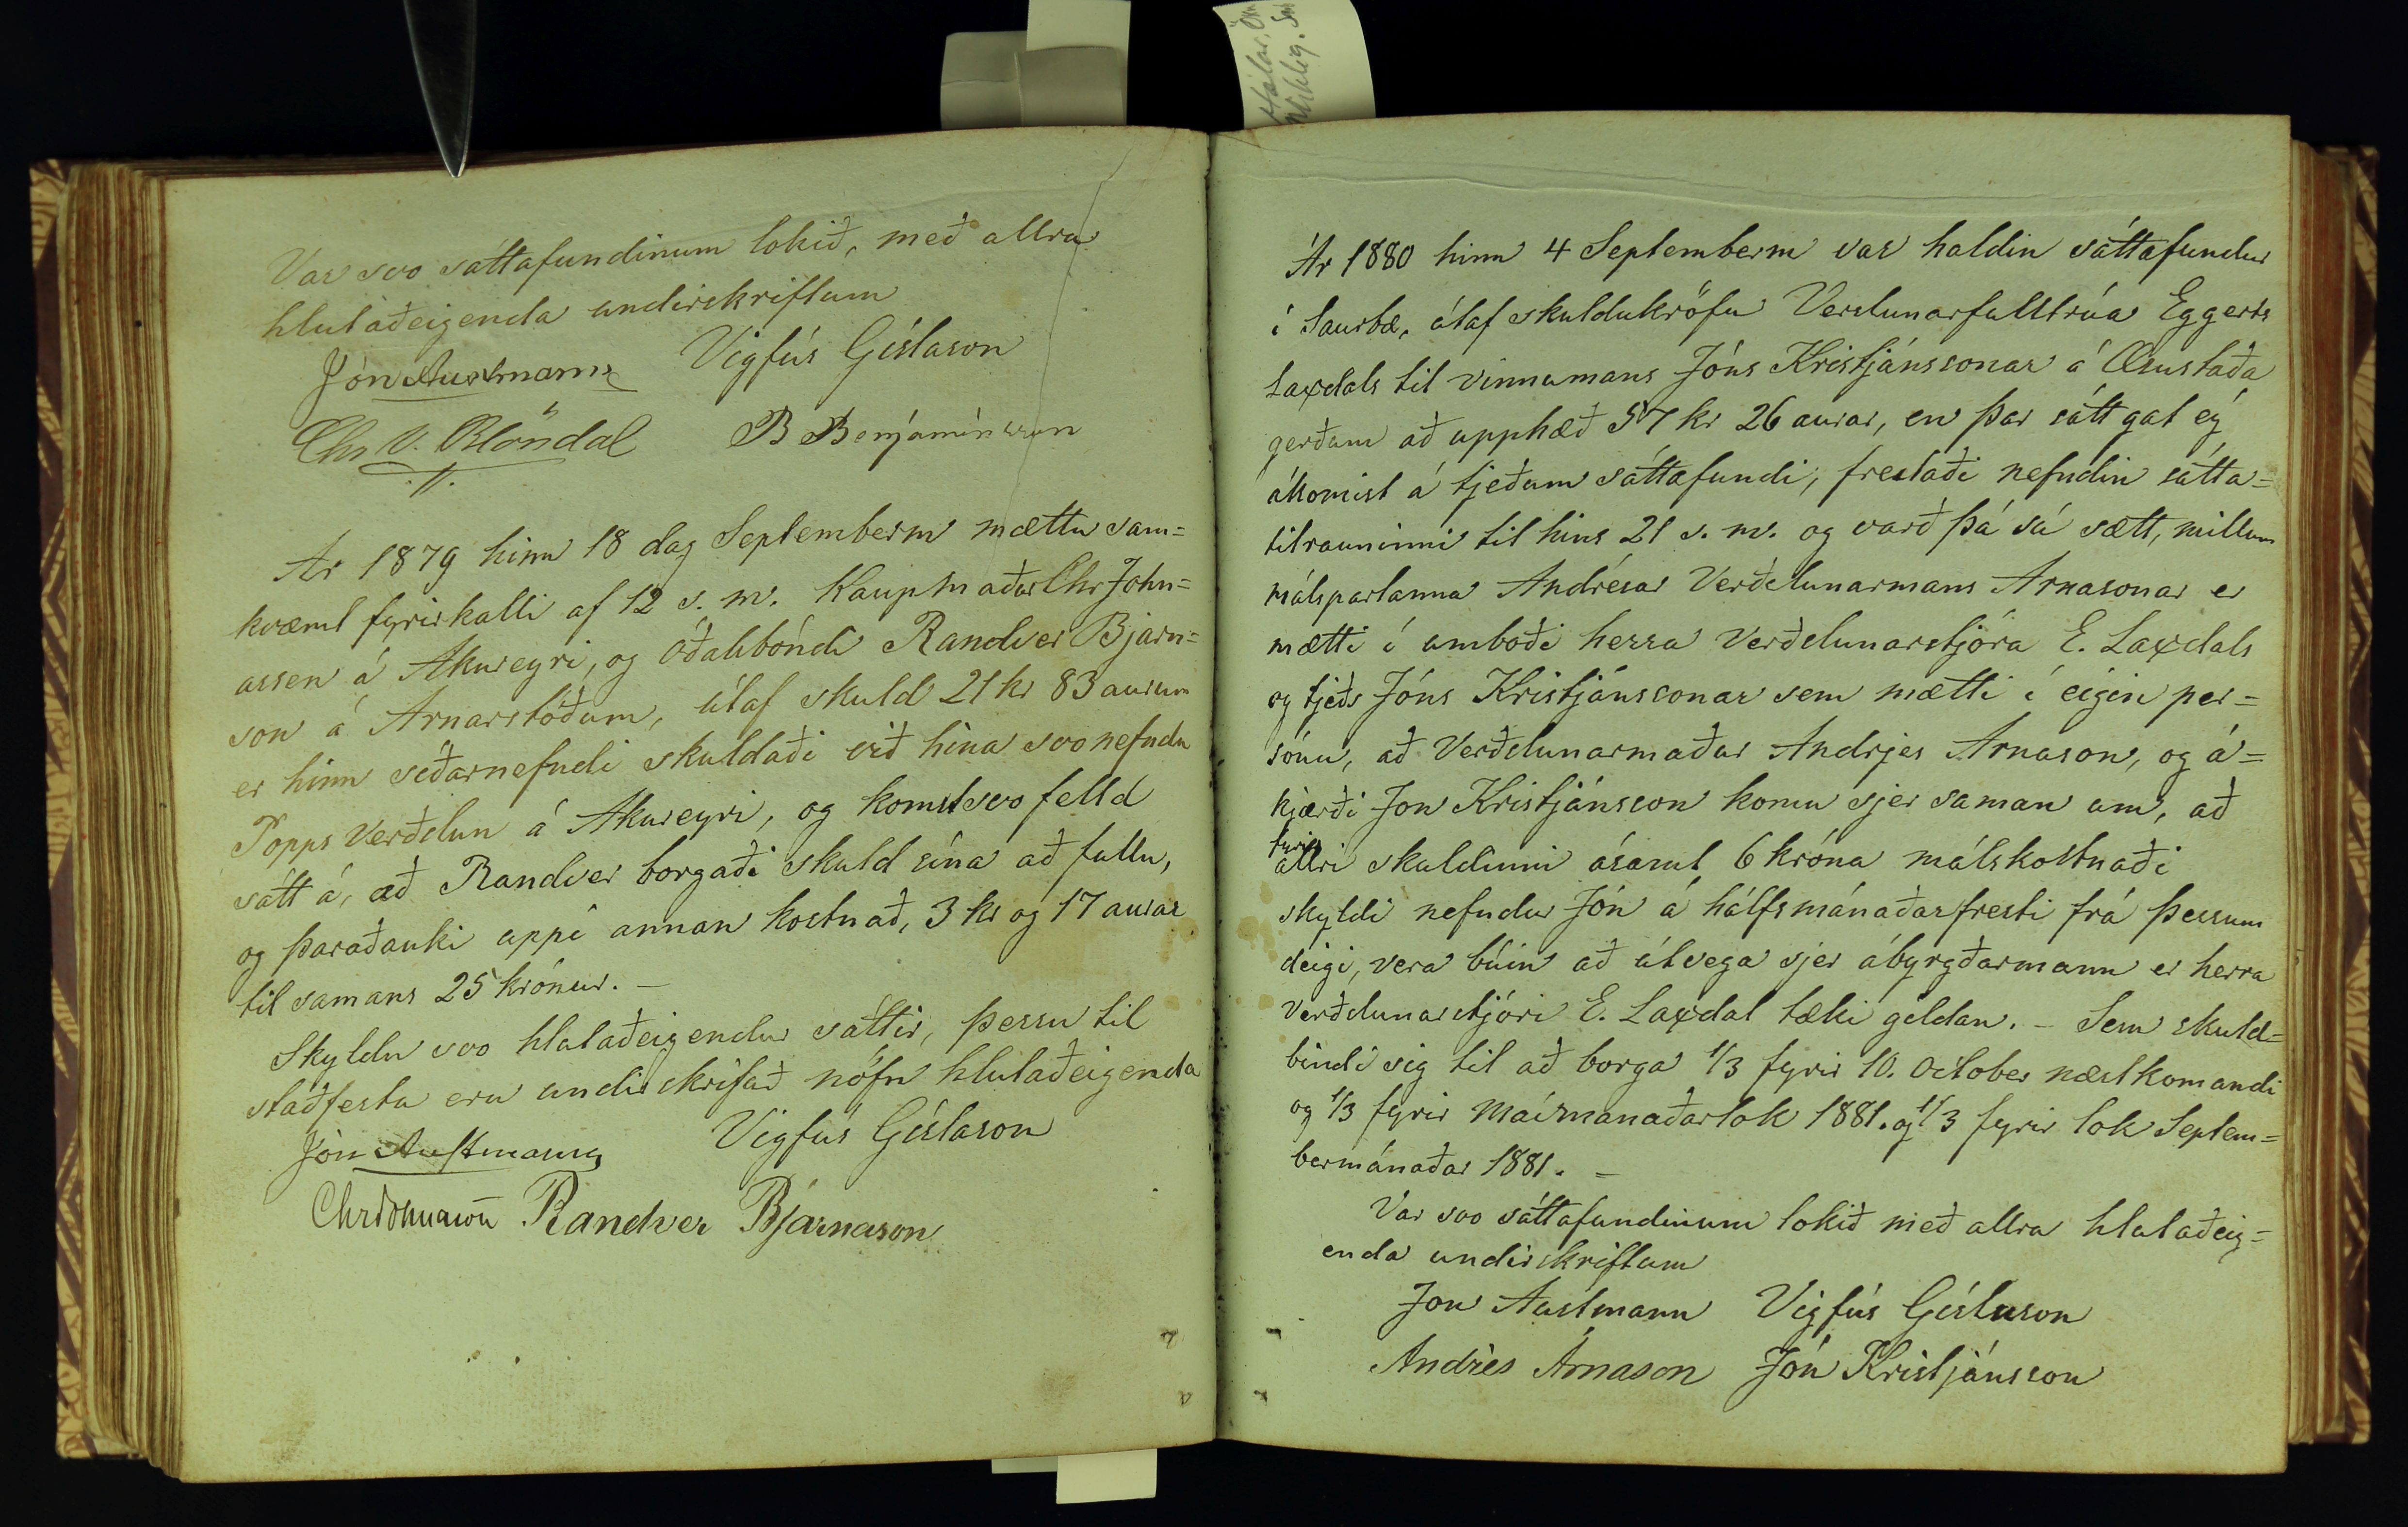 Var svo sáttafundinum lokið, með allra
hlutaðeigenda undirskriftum
Jón Austmann Vigfús Gíslason
Chr V. Blöndal B Benjamínsson
Ar 1879 hinn 18 dag Septemberm mættu sam=
kvæmt fyrirkalli af 12 s. m. Kaupmaður Chr John=
assen á Akureyri, og Óðalsbóndi Randver Bjarn=
son á Arnarstöðum, útaf skuld 21 kr 83 aurum
er hinn síðarnefndi skuldaði við hina svonefndu
Popps Verðslun á Akureyri, og komst svo felld
sátt á, að Randver borgaði skuld sína að fullu,
og þaraðauki uppí annan kostnað, 3 kr og 17 aurar
til samans 25 krónur. —
Skyldu svo hlutaðeigendur sáttir, þessu til
staðfestu eru undirskrifað nöfn hlutaðeigenda
Jón Austmann Vigfús Gíslason
Chr Johnason Randver Bjarnason
Ár 1880 hinn 4 Septemberm var haldin sáttafundur
í Saurbæ, útaf skuldukröfu Verslunarfulltrúa Eggerts
Laxdals til vinnumans Jóns Kristjánssonar á Æsustaða
gerðum að upphæð 57 kr 26 aurar, en þar sátt gat ey
ákomist á tjeðum sáttafundi, frestaði nefndin sátta=
tilrauninni til hins 21 s. m. og varð þá sú sætt, millum
málspartanna Andrésar Verðslunarmans Arnasonar er
mætti í umboði herra Verðslunarstjóra E. Laxdals
og tjeðs Jóns Kristjánssonar sem mætti í eigin per=
sónu, að Verðslunarmaður Andrjes Arnason, og á=
kjærði Jon Kristjánsson komu sjer saman um, að
fyrir
allri skuldinni ásamt 6 króna málskostnaði
skyldi nefndur Jón á hálfsmánaðarfresti frá þessum
deigi, vera búin að útvega sjer ábyrgðarmann er herra
verðslunarstjóri E. Laxdal tæki gildan. – Sem skuld=
bindi sig til að borga 1/3 fyrir 10. October næstkomandi
og 1/3 fyrir Maímanaðarlok 1881. og 1/3 fyrir lok Septem=
bermánaðar 1881. –
Var svo sáttafundinum lokið með allra hlutaðeig=
enda undirskriftum
Jon Austmann Vigfús Gíslason
Andrès Árnason Jón Kristjánsson